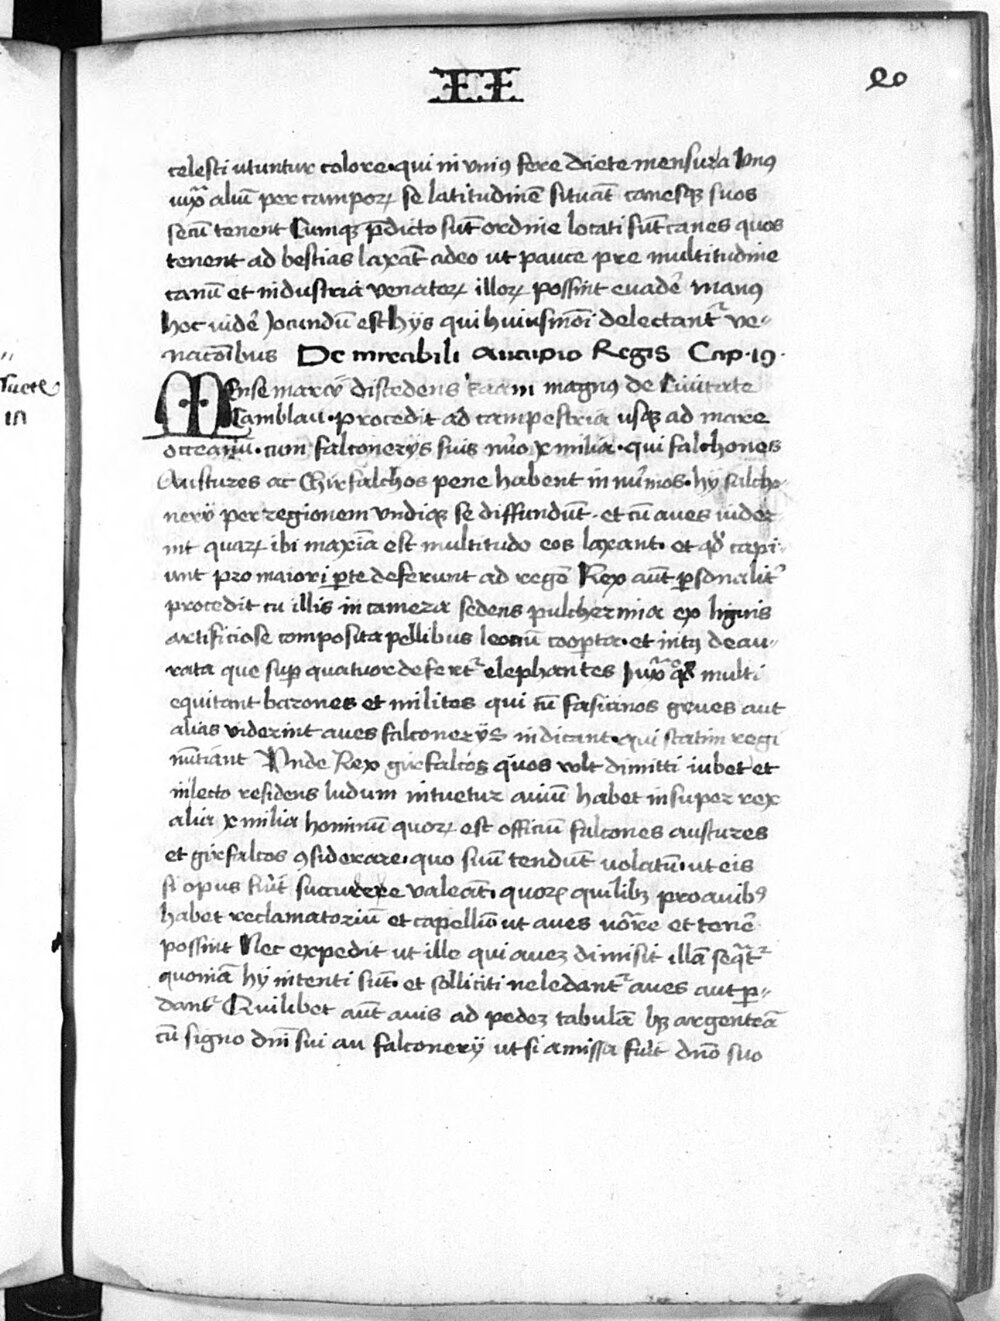 II
80
celesti utuntur colore·qui in uniꝰ fere diete mensura Unꝰ
iuxͣ aliū per campoꝝ se latitudinē situāt canesqꝫ suos
secū tenent Cumqꝫ p̄dicto sūt ordine locati sūt canes quos
tenent ad bestias laxāt adeo ut pauce pre multitudine
canū et industria venatoꝝ illoꝝ possint euadē manꝰ
hoc uidē Jocundū est hijs qui huiusmōi delectantᷣ ve-
nacōibus De mirabili Aucupio Regis Cap·19·
Mense marcij discedens kaam magnꝰ de Ciuitate
Camblau·procedit ad campestria usqꝫ ad mare
occeanū·cum falconerijs suis nūo x milia·qui falchones
Austures ac Girfalchos pene habent innūmos·hij falcho-
nerij per regionem undiqꝫ se diffundūt·et cū aues uider-
int quaꝝ ibi maxīa est multitudo eos laxant·et qd̓ capi-
unt pro maiori ꝑte deferunt ad regē Rex aūt ꝑsonalitᷣ
procedit cū illis in camera sedens pulcherrima ex lignis
artificiose composita pellibus leonū cooꝑta·et intꝰ deau-
rata que suꝑ quatuor defertᷣ elephantes Juxͣ qͦs multi
equitant barones et milites qui cū fasianos grues aut
alias viderint aues falconerijs indicant·qui statim regi
nūtiant Unde Rex girfalcos quos volt dimitti iubet et
in lecto residens ludum intuetur auiū habet insuper rex
alia x milia hominū quoꝝ est officiū falcones austures
et girfalcos ꝯsiderare·quo suū tendūt uolatū·ut eis
si opus fuīt succurere valeāt·quoꝝ quilibꝫ pro auibꝰ
habet reclamatoriū et capelliū ut aues uōre et tenē
possint Nec expedit ut ille qui auez dimisit illā seqͣtᷣ
quoniā hij intenti sūt·et solliciti ne ledantᷣ aues aut ꝑ-
dantᷣ Quilibet aūt auis ad pedez tabulā hꝫ argenteā
cū signo dn̄i sui au falconerij ut si amissa fuīt dn̄o suo